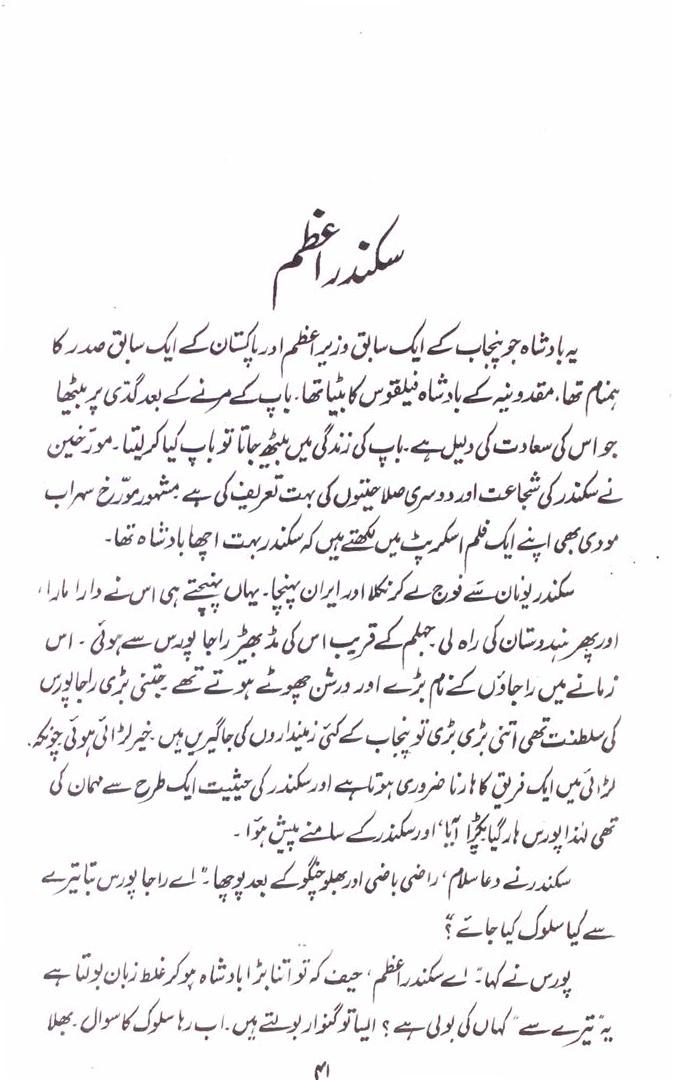 سکندر اعظم
یہ بادشاہ جو پنجاب کے ایک سابق وزیر اعظم اور پاکستان کے ایک سابق صدر کا
ہمنام تھا، مقدونیہ کے بادشاہ فیلقوس کا بیٹا تھا۔ باپ کے مرنے کے بعد گدّی پر بیٹھا
جو اس کی سعادت کی دلیل ہے۔ باپ کی زندگی میں بیٹھ جاتا تو باپ کیا کر لیتا۔ مورّخین
نے سکندر کی شجاعت اور دوسری صلاحیتوں کی بہت تعریف کی ہے۔ مشہور مورّخ سہراب
مودی بھی اپنے ایک فلم اسکرپٹ میں لکھتے ہیں کہ سکندر بہت اچھا بادشاہ تھا۔
سکندر یونان سے فوج لے کر نکلا اور ایران پہنچا۔ یہاں پہنچتے ہی اس نے دارا مارا،
اور پھر ہندوستان کی راہ لی۔ جہلم کے قریب اس کی مڈبھیڑ راجا پورس سے ہوئی۔ اس
زمانے میں راجاؤں کے نام بڑے اور درشن چھوٹے ہوتے تھے۔ جتنی بڑی راجا پورس
کی سلطنت تھی اتنی بڑی بڑی تو پنجاب کے کئی زمینداروں کی جاگیریں ہیں۔ خیر لڑائی ہوئی چونکہ
لڑائی میں ایک فریق کا ہارنا ضروری ہوتا ہے اور سکندر کی حیثیت ایک طرح سے مہمان کی
تھی لہٰذا پورس ہار گیا پکڑا آیا، اور سکندر کے سامنے پیش ہوا۔
سکندر نے دعا سلام، راضی باضی اور بھلو چنگو کے بعد پوچھا۔ "اے راجا پورس بتا تیرے
سے کیا سلوک کیا جائے؟"
پورس نے کہا۔ "اے سکندر اعظم، حیف کہ تو اتنا بڑا بادشاہ ہو کر غلط زبان بولتا ہے
یہ "تیرے سے" کہاں کی بولی ہے؟ ایسا تو گنوار بولتے ہیں۔ اب رہا سلوک کا سوال۔ بھلا
۴۱